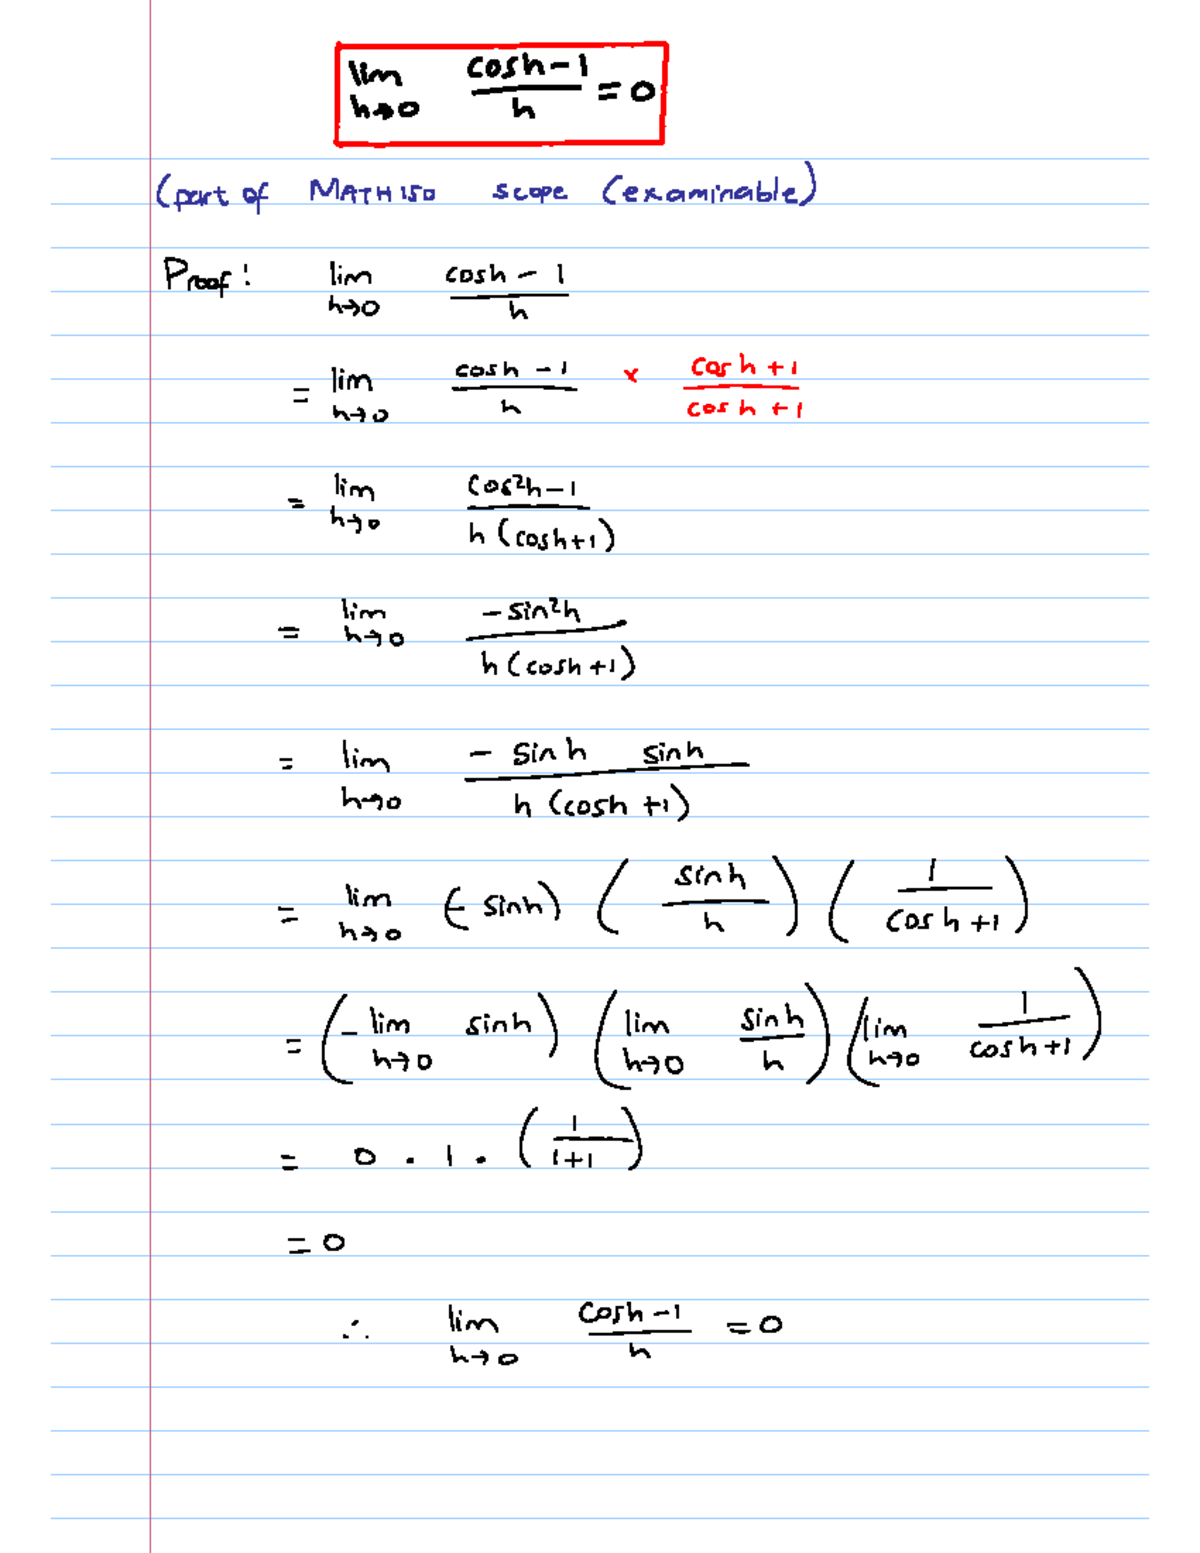 lim h→0 (cosh-1)/h = 0
(part of MATH150 scope (examinable)
Proof: lim h→0 (cosh - 1)/h
= lim h→0 (cosh - 1)/h × (cosh + 1)/(cosh + 1)
= lim h→0 (cos²h-1)/(h(cosh+1))
= lim h→0 (-sin²h)/(h(cosh+1))
= lim h→0 (- sinh sinh)/(h(cosh+1))
= lim h→0 (- sinh) (sinh/h) (1/(cosh+1))
= (- lim h→0 sinh) (lim h→0 sinh/h) (lim h→0 1/(cosh+1))
= 0 . 1 . (1/(1+1))
= 0
∴ lim h→0 (cosh-1)/h = 0